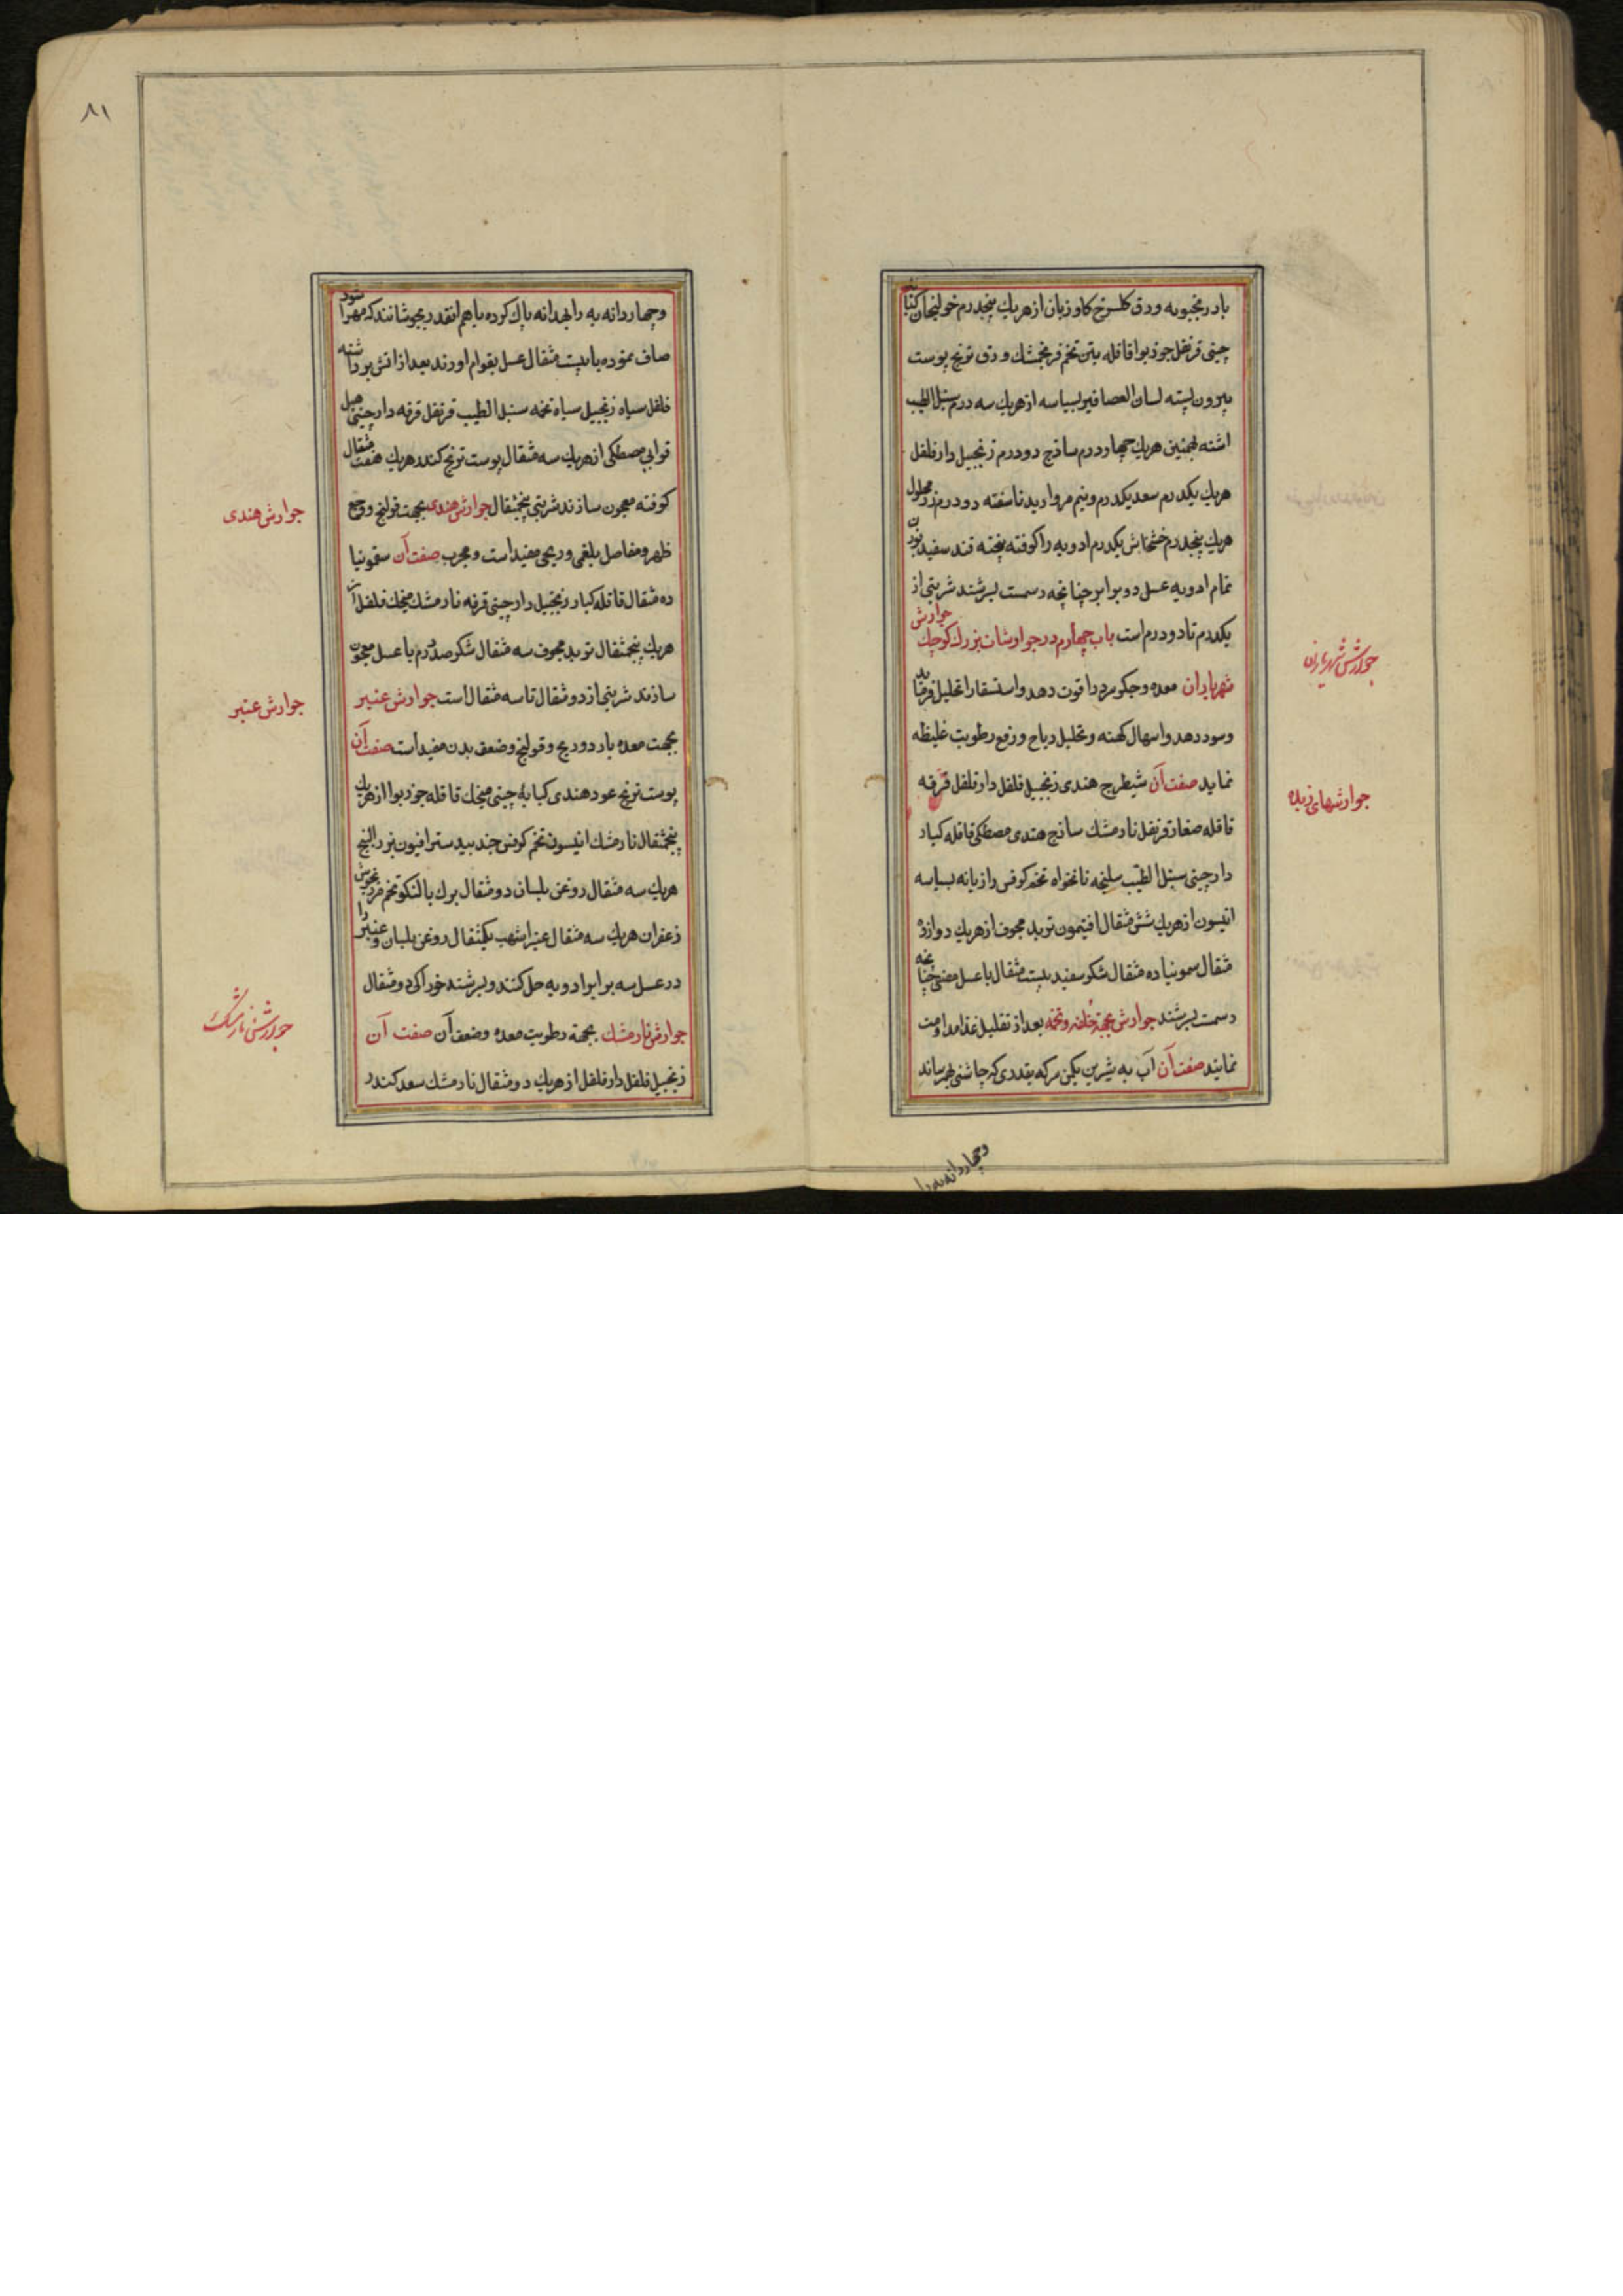 بادرنجبویه ورق کلسرخ کاوزبان ازهریك پنجدرم خولنجان کبابه
چینی قرنفل جوزبوا قاقله بتین تخم فرنجمشك ورق ترنج پوست
بیرون پسته لسان العصافیر بسباسه ازهریك سه درم سنبل الطیب
اشنه بهمنین هریك چهاردرم ساذج دودرم زنجبیل دارفلفل
هریك یکدرم سعد یکدرم ونیم مروارید ناسفته دودرم زر محلول
هریك پنجدرم خشخاش یکدرم ادویه را کوفته بیخته قند سفید بوزن
تمام ادویه عسل دوبرابر چنانچه رسمست بسرشند شربتی از
یکدرم تا دودرم است باب چهارم در جوارشات بزرك کوچك جوارش
شهریاران معده وجکر سرد را قوت دهد واستسقا را تحلیل فرماید
وسود دهد واسهال کهنه وتحلیل ریاح ورفع رطوبت غلیظه
نماید صفت آن شیطرج هندی زنجبیل فلفل دارفلفل قرفه
قاقله صغار قرنفل نارمشك ساذج هندی مصطکی قاقله کبار
دارچینی سنبل الطیب سلیخه نانخواه تخم کرفس رازیانه بسباسه
انیسون ازهریك شش مثقال افتیمون تربد مجوف ازهریك دوازده
مثقال سمونیا ده مثقال شکر سفید بیست مثقال با عسل مصفی چنانچه
رسمست بسرشند جوارش بجهة خلفه وتخمه بعد از تقلیل غذا مداومت
نمایند صفت آن آب به شیرین یکمن سرکه بقدری که چاشنی بهم رساند
وچهاردانه به را
جوارش شهریاران
جوارشهای زیده
۸۱
وچهاردانه به را بهدانه پاك کرده باهم انقدر بجوشانند که مهرا شود
صاف نموده با بیست مثقال عسل بقوام اورند بعد از اتش برداشته
فلفل سیاه زنجبیل سیاه تخمه سنبل الطیب قرنفل قرفه دارچینی هیل
قوابی مصطکی ازهریك سه مثقال پوست ترنج کندر هریك هفت مثقال
کوفته معجون سازند شربتی پنجمثقال جوارش هندی بجهت قولنج ووجع
ظهر ومفاصل بلغمی وریحی مفیداست ومجرب صفت آن سقمونیا
ده مثقال قاقله کبار زنجبیل دارچینی قرفه نارمشك میخك فلفل از
هریك پنجمثقال تربد مجوف سه مثقال شکر صددرم با عسل معجون
سازند شربتی از دومثقال تا سه مثقال است جوارش عنبر
بجهت معده بارد وریح وقولنج وضعف بدن مفیداست صفت آن
پوست ترنج عود هندی کبابه چینی میخك قاقله جوزبوا ازهریك
پنجمثقال نارمشك انیسون تخم کرفس جندبیدستر افیون بزر البنج
هریك سه مثقال روغن بلسان دومثقال برك بالنکو تخم فرنجوش
زعفران هریك سه مثقال عنبر اشهب یکمثقال روغن بلسان وعنبر را
در عسل سه برابر ادویه حل کنند وبسرشند خوراکی دومثقال
جوارش نارمشك بجهة رطوبت معده وضعف آن صفت آن
زنجبیل فلفل دارفلفل ازهریك دومثقال نارمشك سعد کندر
جوارش هندی
جوارش عنبر
جوارش نارمشك